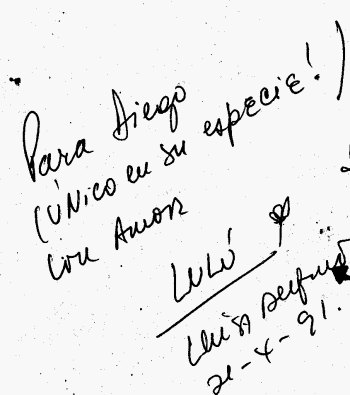 Para Diego
(ÚNico en su especie!)
con Amor
LULÚ
Luisa
21-4-91.